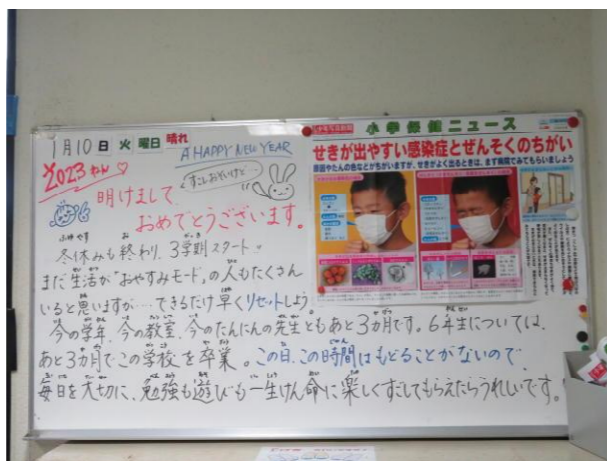 1月10日 火曜日 晴れ
A HAPPY NEW YEAR
すこしおそいけど…
2023ねん
明けまして
おめでとうございます。
冬休みも終わり、3学期スタート
まだ生活が“おやすみモード”の人もたくさん
いると思いますが…できるだけ早くリセットしよう。
今の学年、今の教室、今のたんにんの先生ともあと3ヵ月です。6年生については、
あと3ヵ月でこの学校を卒業。この日、この時間はもどることがないので、
毎日を大切に、勉強も遊びも一生けん命に楽しくすごしてもらえたらうれしいです。
小学保健ニュース
せきが出やすい感染症とぜんそくのちがい
原因やたんの色などがちがいますが、せきがよく出るときは、まず病院でみてもらいましょう